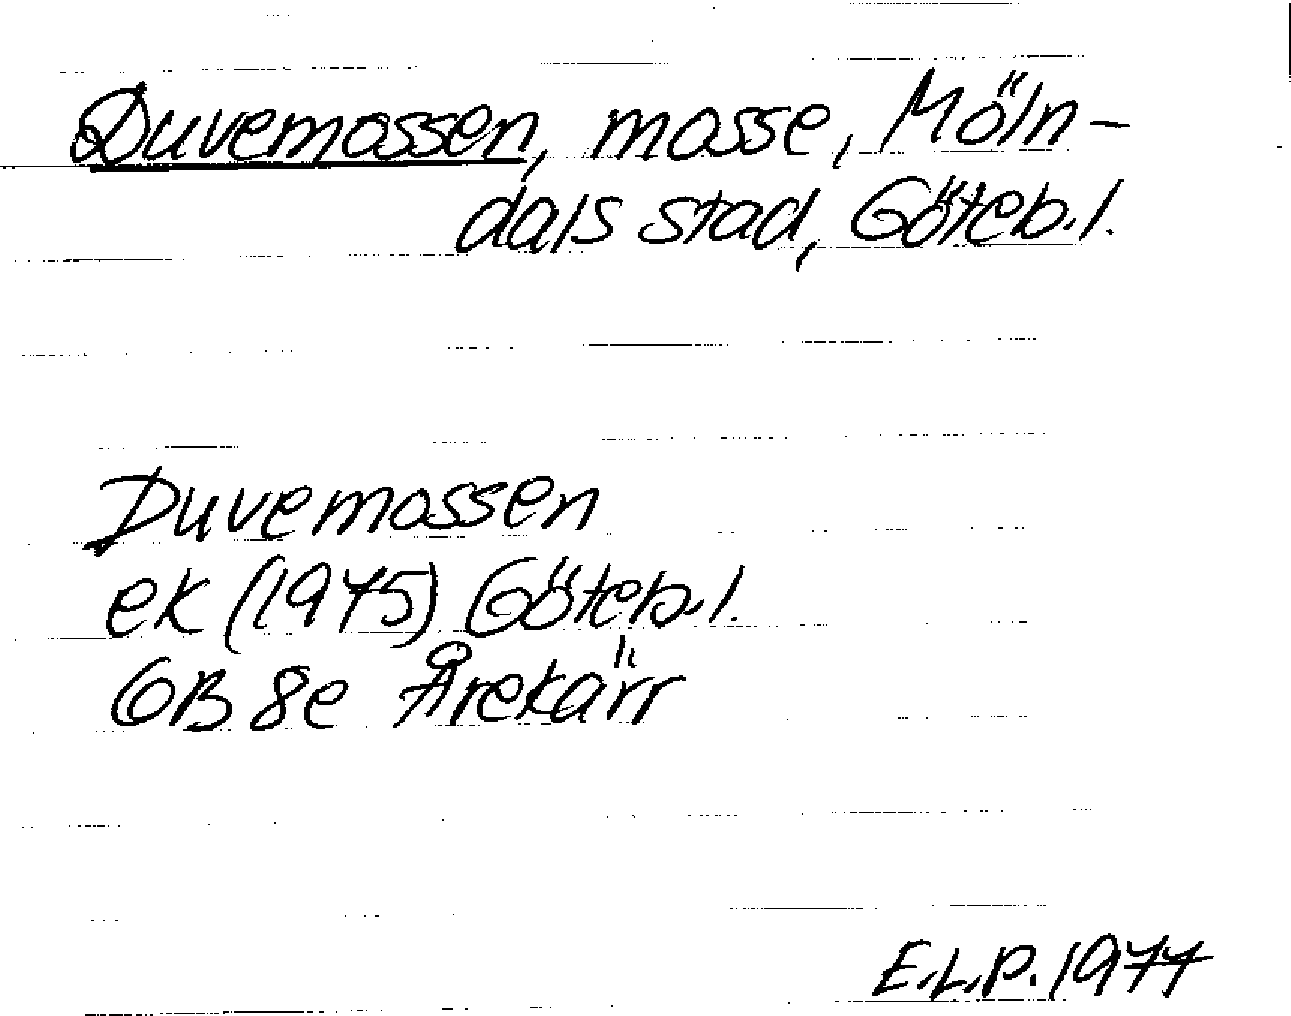 Duvemossen, mosse, Möln-
dals stad, Göteb.l.
Duvemossen
ek (1975) Göteb.l.
6B 8e Årekärr
E.L.P. 1977